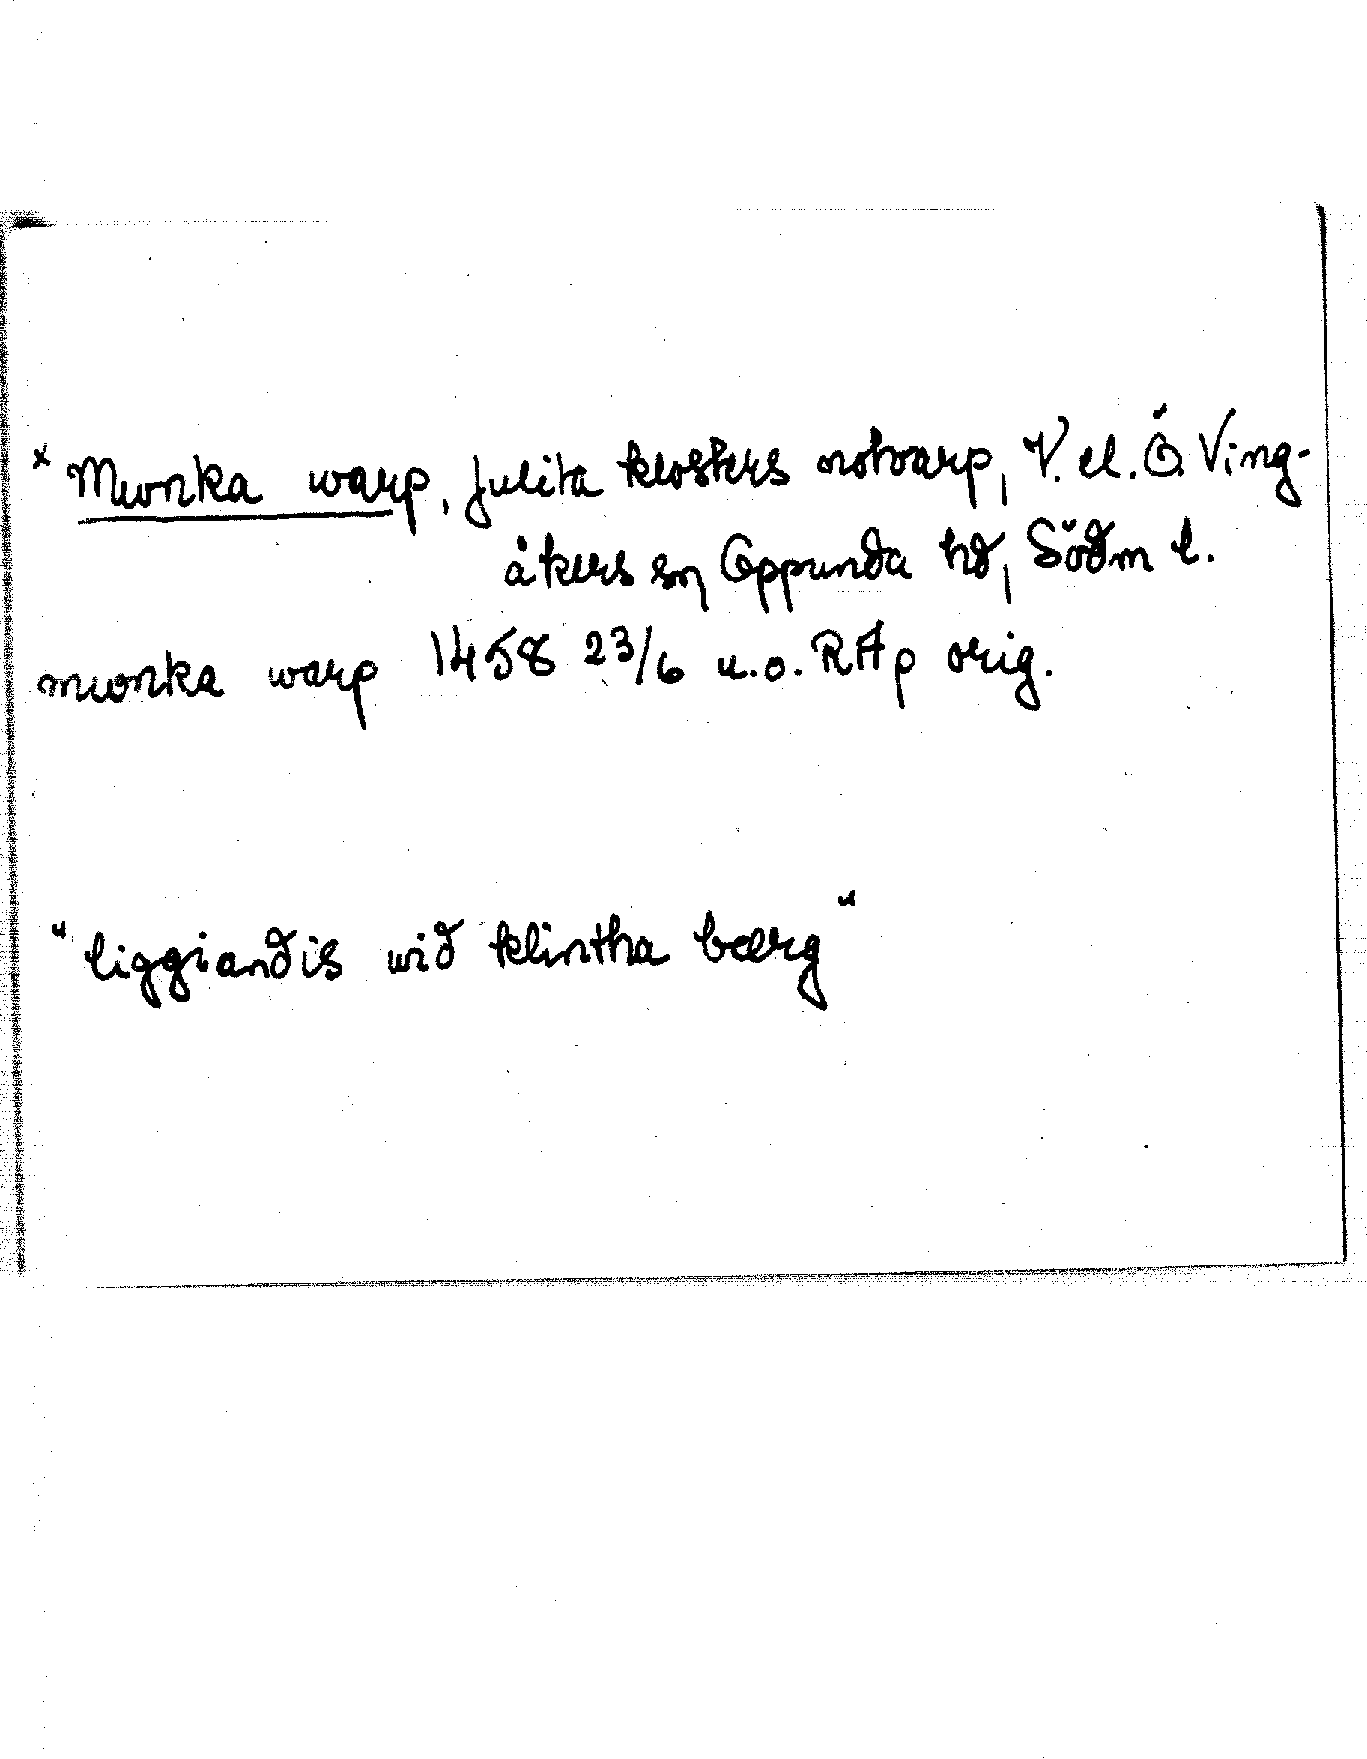 x Munka warp, Julita klosters notvarp, V. el. Ö. Ving-
åkers sn, Oppunda hd, Södm l.
munka warp 1458 23/6 u.o. RAp orig.
"liggiandis wid klintha bærg"